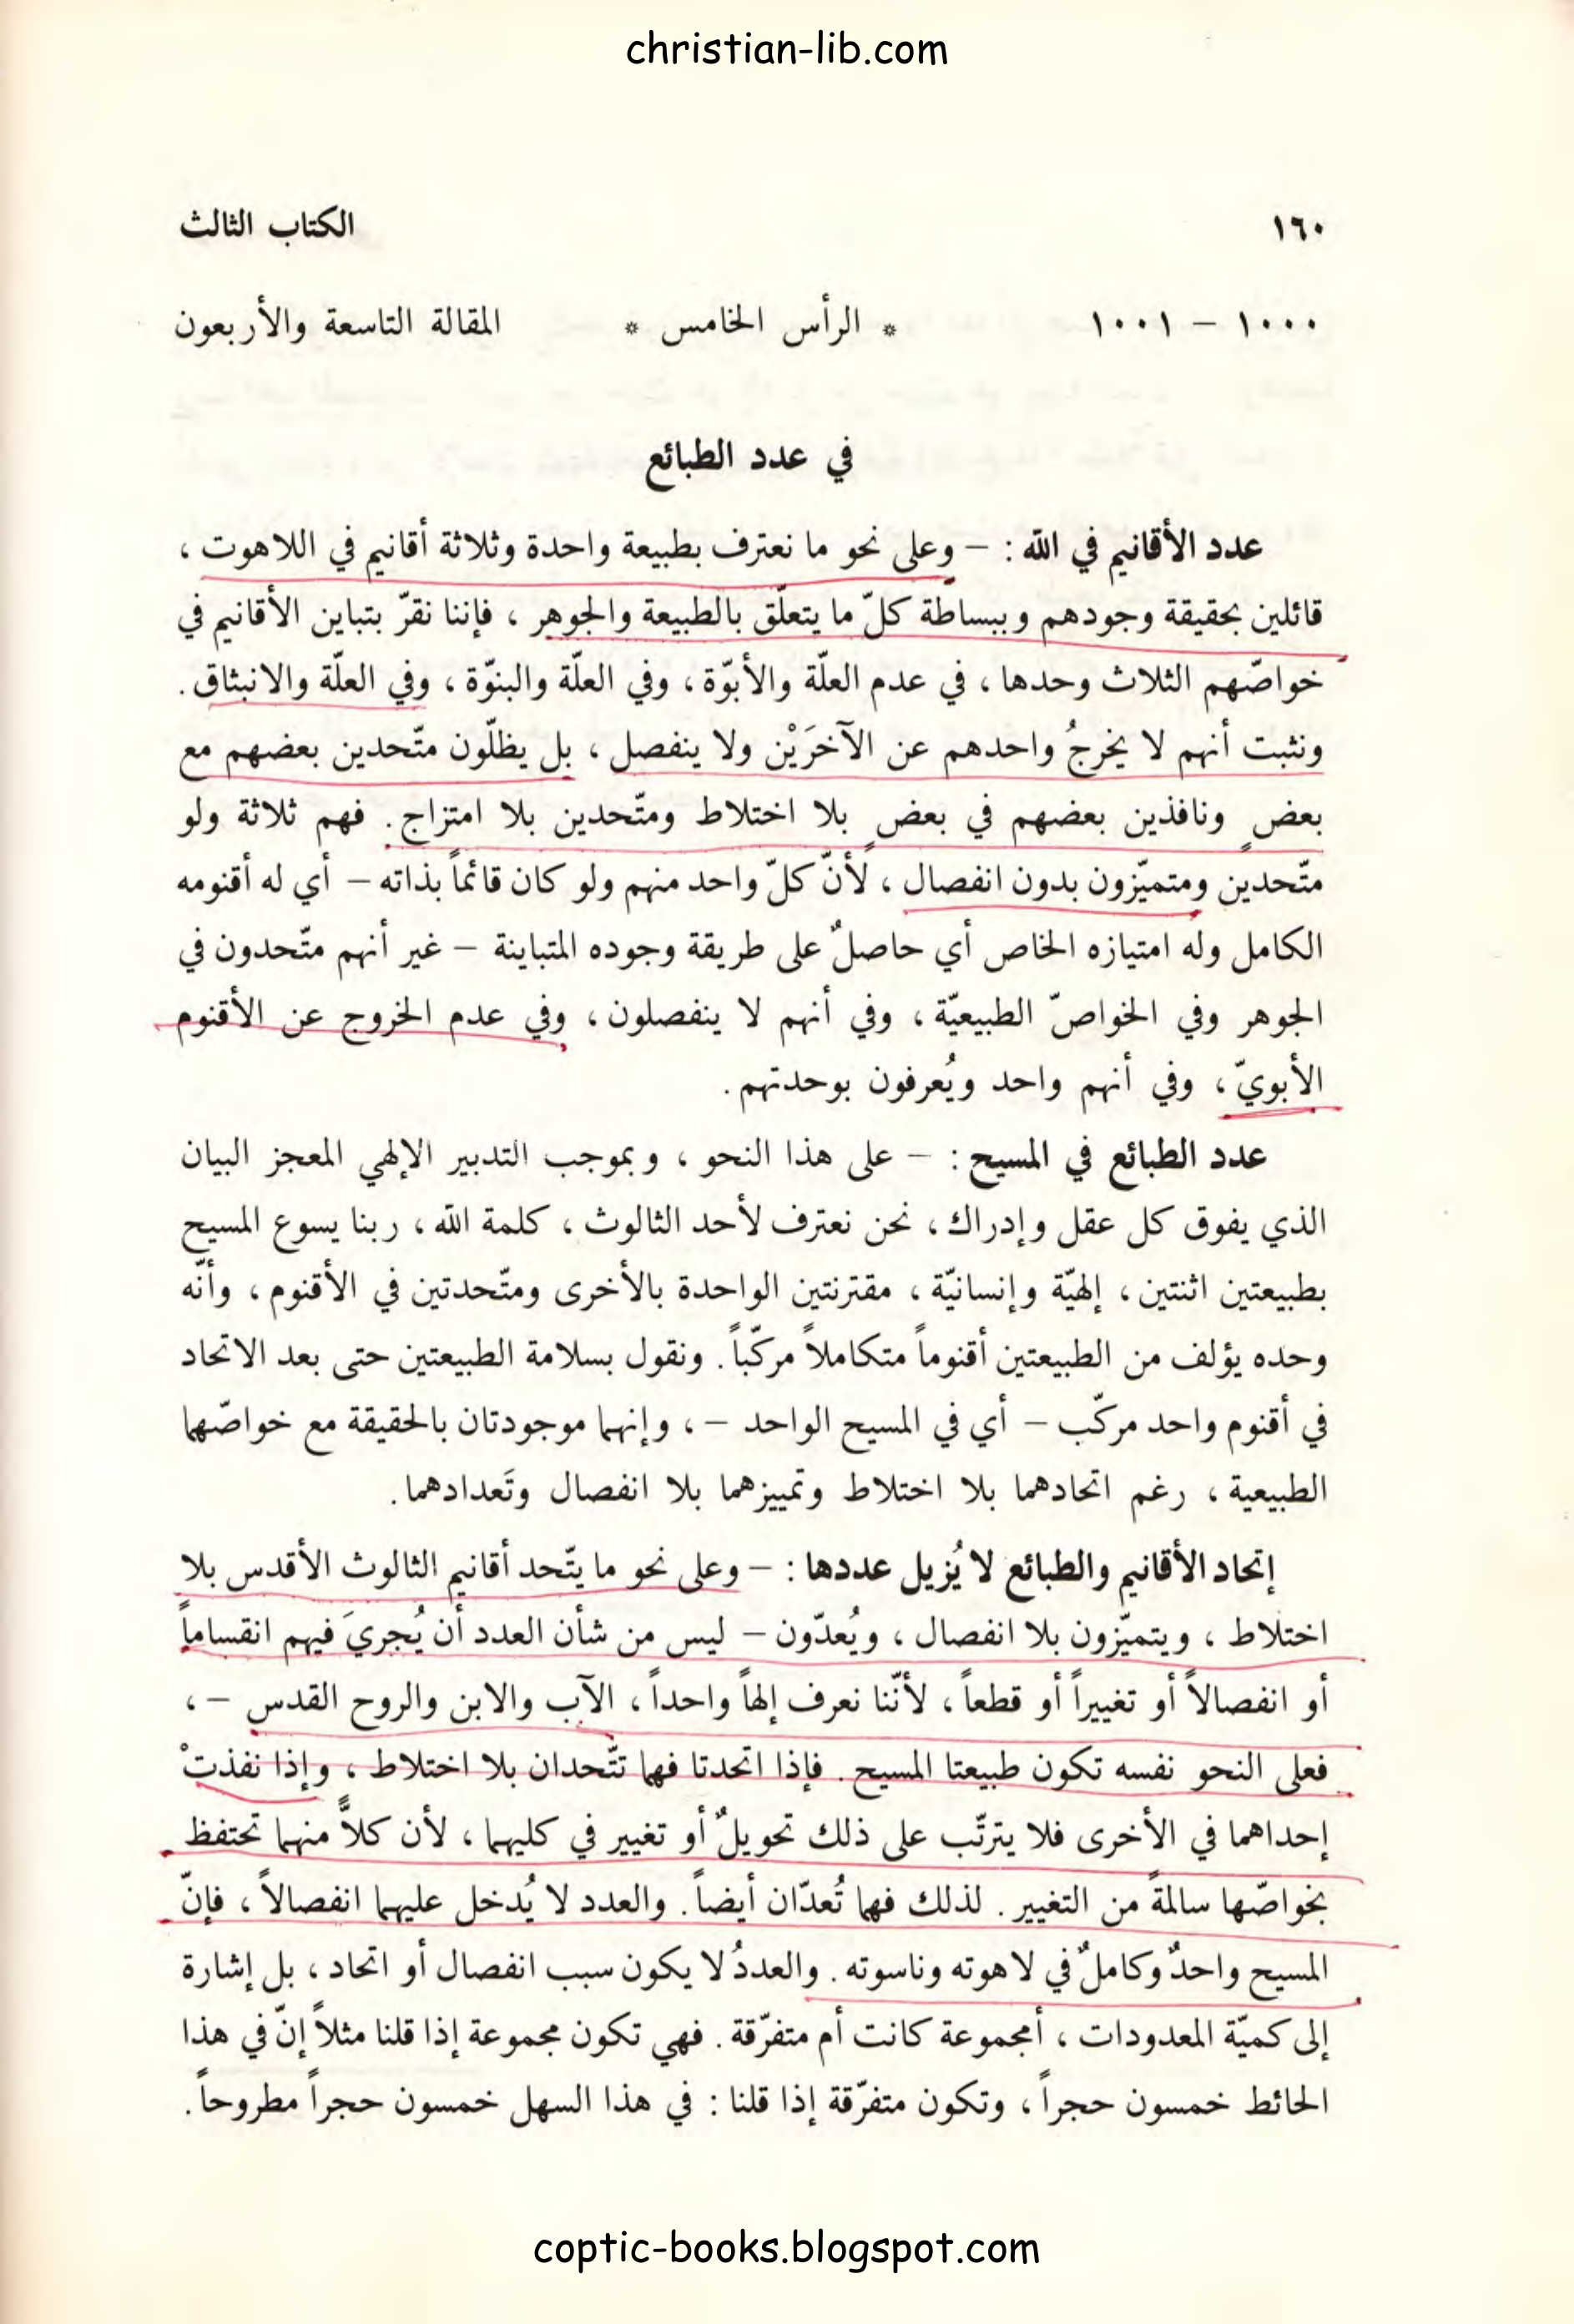 christian-lib.com
١٦٠ الكتاب الثالث
١٠٠٠ – ١٠٠١ * الرأس الخامس * المقالة التاسعة والأربعون
في عدد الطبائع
عدد الأقانيم في الله : – وعلى نحو ما نعترف بطبيعة واحدة وثلاثة أقانيم في اللاهوت ،
قائلين بحقيقة وجودهم وببساطة كلّ ما يتعلّق بالطبيعة والجوهر ، فإننا نقرّ بتباين الأقانيم في
خواصّهم الثلاث وحدها ، في عدم العلّة والأبوّة ، وفي العلّة والبنوّة ، وفي العلّة والانبثاق .
ونثبت أنهم لا يخرجُ واحدهم عن الآخرَيْن ولا ينفصل ، بل يظلّون متّحدين بعضهم مع
بعضٍ ونافذين بعضهم في بعضٍ بلا اختلاط ومتّحدين بلا امتزاج . فهم ثلاثة ولو
متّحدين ومتميّزون بدون انفصال ، لأنّ كلّ واحد منهم ولو كان قائماً بذاته – أي له أقنومه
الكامل وله امتيازه الخاص أي حاصلٌ على طريقة وجوده المتباينة – غير أنهم متّحدون في
الجوهر وفي الخواصّ الطبيعيّة ، وفي أنهم لا ينفصلون ، وفي عدم الخروج عن الأقنوم
الأبويّ ، وفي أنهم واحد ويُعرفون بوحدتهم .
عدد الطبائع في المسيح : – على هذا النحو ، وبموجب التدبير الإلهي المعجز البيان
الذي يفوق كل عقل وإدراك ، نحن نعترف لأحد الثالوث ، كلمة الله ، ربنا يسوع المسيح
بطبيعتين اثنتين ، إلهيّة وإنسانيّة ، مقترنتين الواحدة بالأخرى ومتّحدتين في الأقنوم ، وأنّه
وحده يؤلف من الطبيعتين أقنوماً متكاملاً مركّباً . ونقول بسلامة الطبيعتين حتى بعد الاتحاد
في أقنوم واحد مركّب – أي في المسيح الواحد – ، وإنهما موجودتان بالحقيقة مع خواصّهما
الطبيعية ، رغم اتحادهما بلا اختلاط وتمييزهما بلا انفصال وتَعدادهما .
إتحاد الأقانيم والطبائع لا يُزيل عددها : – وعلى نحو ما يتّحد أقانيم الثالوث الأقدس بلا
اختلاط ، ويتميّزون بلا انفصال ، ويُعدّون – ليس من شأن العدد أن يُجريَ فيهم انقساماً
أو انفصالاً أو تغييراً أو قطعاً ، لأنّنا نعرف إلهاً واحداً ، الآب والابن والروح القدس – ،
فعلى النحو نفسه تكون طبيعتا المسيح . فإذا اتحدتا فهما تتّحدان بلا اختلاط ، وإذا نفذتْ
إحداهما في الأخرى فلا يترتّب على ذلك تحويلٌ أو تغيير في كليهما ، لأن كلاًّ منهما تحتفظ
بخواصّها سالمةً من التغيير . لذلك فهما تُعدّان أيضاً . والعدد لا يُدخل عليهما انفصالاً ، فإنّ
المسيح واحدٌ وكاملٌ في لاهوته وناسوته . والعددُ لا يكون سبب انفصال أو اتحاد ، بل إشارة
إلى كميّة المعدودات ، أمجموعة كانت أم متفرّقة . فهي تكون مجموعة إذا قلنا مثلاً إنّ في هذا
الحائط خمسون حجراً ، وتكون متفرّقة إذا قلنا : في هذا السهل خمسون حجراً مطروحاً .
coptic-books.blogspot.com